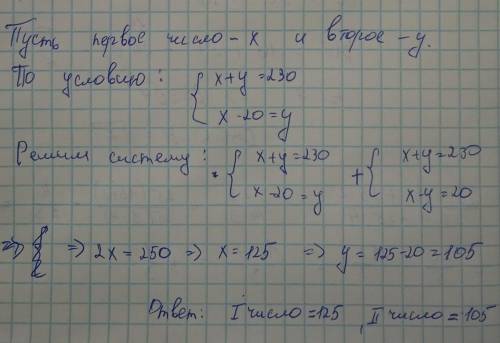 Пусть первое число - x и второе - y.
По условию: { x+y=230
x-20=y
Решим систему: { x+y=230 + { x+y=230
x-20=y x-y=20
=> => 2x=250 => x=125 => y=125-20=105
Ответ: I число=125, II число=105